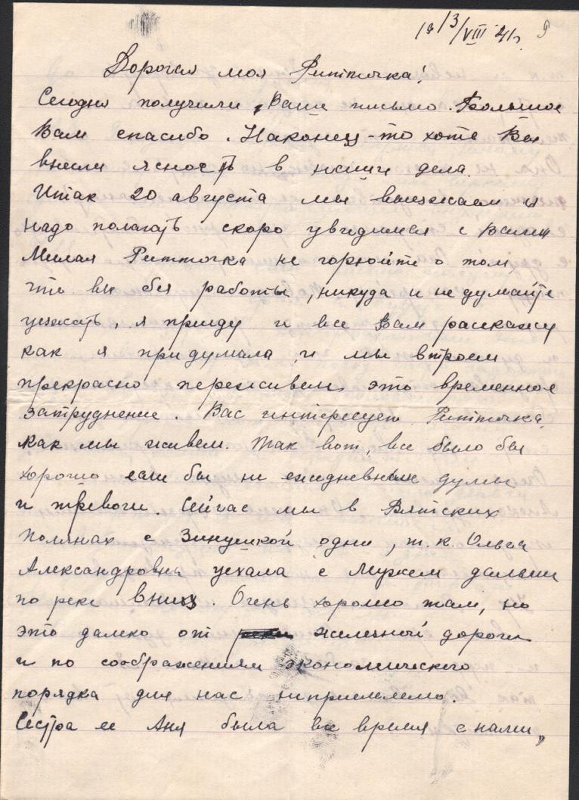 13/VIII 41г.
Дорогая моя Риточка!
Сегодня получили Ваше письмо. Большое
Вам спасибо. Наконец-то хоть Вы
внесли ясность в наши дела.
Итак 20 августа мы выезжаем и
надо полагать скоро увидимся с Вами
Милая Риточка не горюйте о том
что вы без работы, никуда и не думайте
уезжать, я приеду и все Вам расскажу
как я придумала, и мы втроем
прекрасно переживем это временное
затруднение. Вас интересует Риточка,
как мы живем. Так вот, все было бы
хорошо если бы не ежедневные думы
и тревоги. Сейчас мы в Вятских
Полянах с Зинушкой одни, т.к. Ольга
Александровна уехала с Мужем дальше
по реке вниз. Очень хорошо там, но
это далеко от железной дороги
и по соображениям экономического
порядка для нас неприемлемо.
Сестра ее Аня была все время с нами,